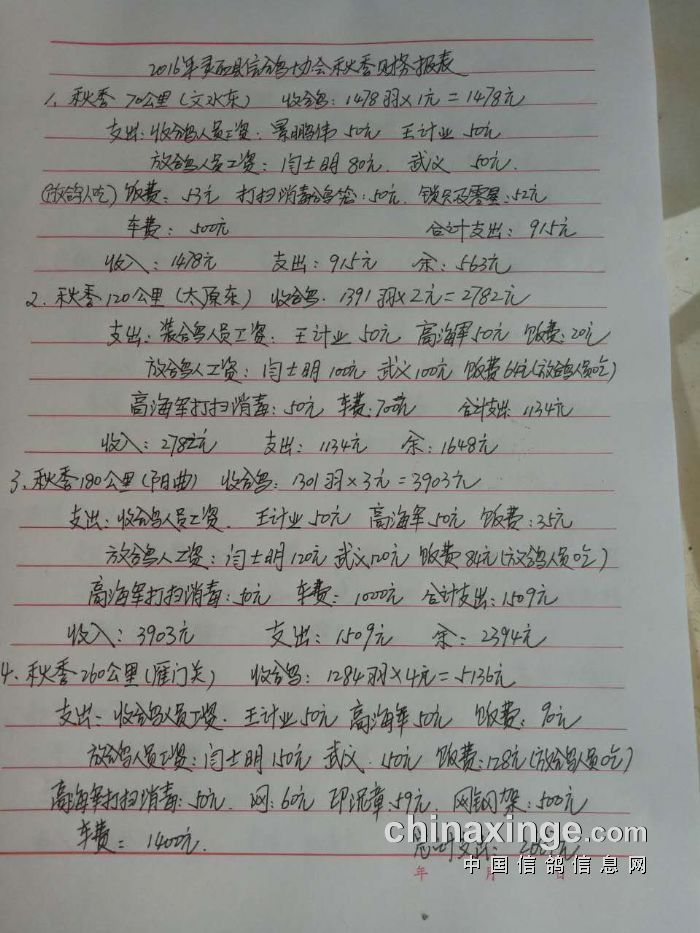 2016年灵石县信鸽协会秋季财务报表
1、秋季 70公里(文水东) 收鸽: 1478羽×1元=1478元
支出: 收鸽人员工资: 景鹏伟 50元 王计业 50元
放鸽人员工资: 闫士明 80元. 武义 50元.
(放鸽人吃) 饭费: 53元 打扫消毒鸽笼: 50元. 锁只及零星: 52元
车费: 500元 合计支出: 915元
收入: 1478元 支出: 915元 余: 563元
2. 秋季120公里(太原东) 收鸽. 1391羽×2元=2782元
支出: 装鸽人员工资: 王计业 50元 高海军50元 饭费: 20元
放鸽人工资: 闫士明100元 武义100元 饭费64元(放鸽人员吃)
高海军打扫消毒: 50元 车费: 700元 合计支出: 1134元
收入: 2782元 支出: 1134元 余: 1648元
3. 秋季180公里(阳曲) 收鸽: 1301羽×3元=3903元
支出: 收鸽人员工资. 王计业50元 高海军50元 饭费: 35元
放鸽人工资: 闫士明120元 武义120元 饭费84元(放鸽人员吃)
高海军打扫消毒: 50元 车费: 1000元 合计支出: 1509元
收入: 3903元 支出: 1509元 余: 2394元
4. 秋季260公里(雁门关) 收鸽: 1284羽×4元=5136元
支出: 收鸽人员工资. 王计业50元 高海军50元 饭费: 90元
放鸽人员工资: 闫士明150元 武义. 150元 饭费: 128元(放鸽人员吃)
高海军打扫消毒: 50元. 网: 60元 印泥章: 59元. 网钢架: 500元
车费: 1400元.
支出:
chinaxinge.com
中国信鸽信息网
年 月 日